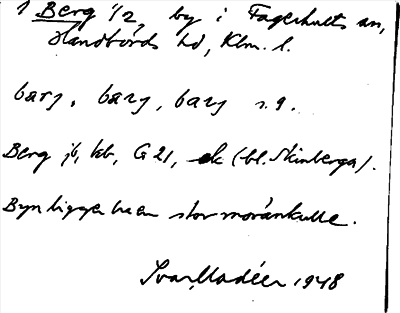 1 Berg 1/2, by i Fagerhults sn,
Handbörds hd, Klm. l.
barj, barj, barj s. g.
Berg jb, kb, G 21, ek (bl. Skinberga).
Byn ligger på en stor moränkulle.
Ivar Modéer 1948